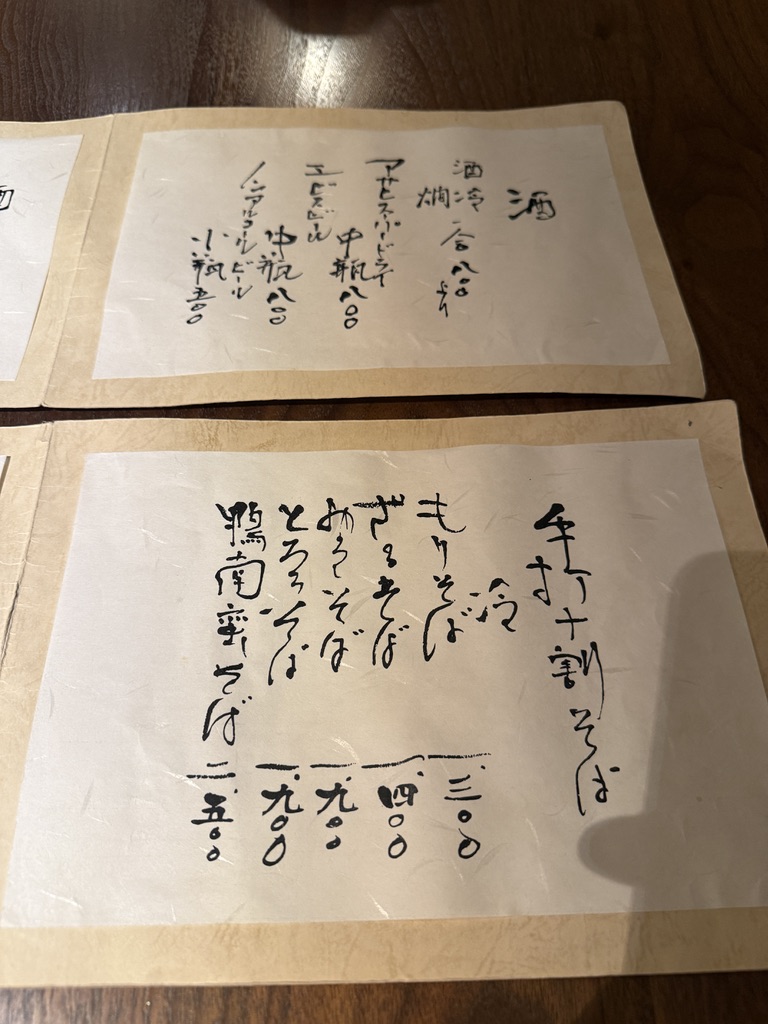 酒
酒 冷 一合 八〇〇より
燗
アサヒスーパードライ
中瓶 八〇〇
エビスビール
中瓶 八〇〇
ノンアルコールビール
小瓶 五〇〇
手打十割そば
冷
もりそば 一、三〇〇
ざるそば 一、四〇〇
そば 一、九〇〇
とろろそば 一、九〇〇
鴨南蛮そば 二、五〇〇